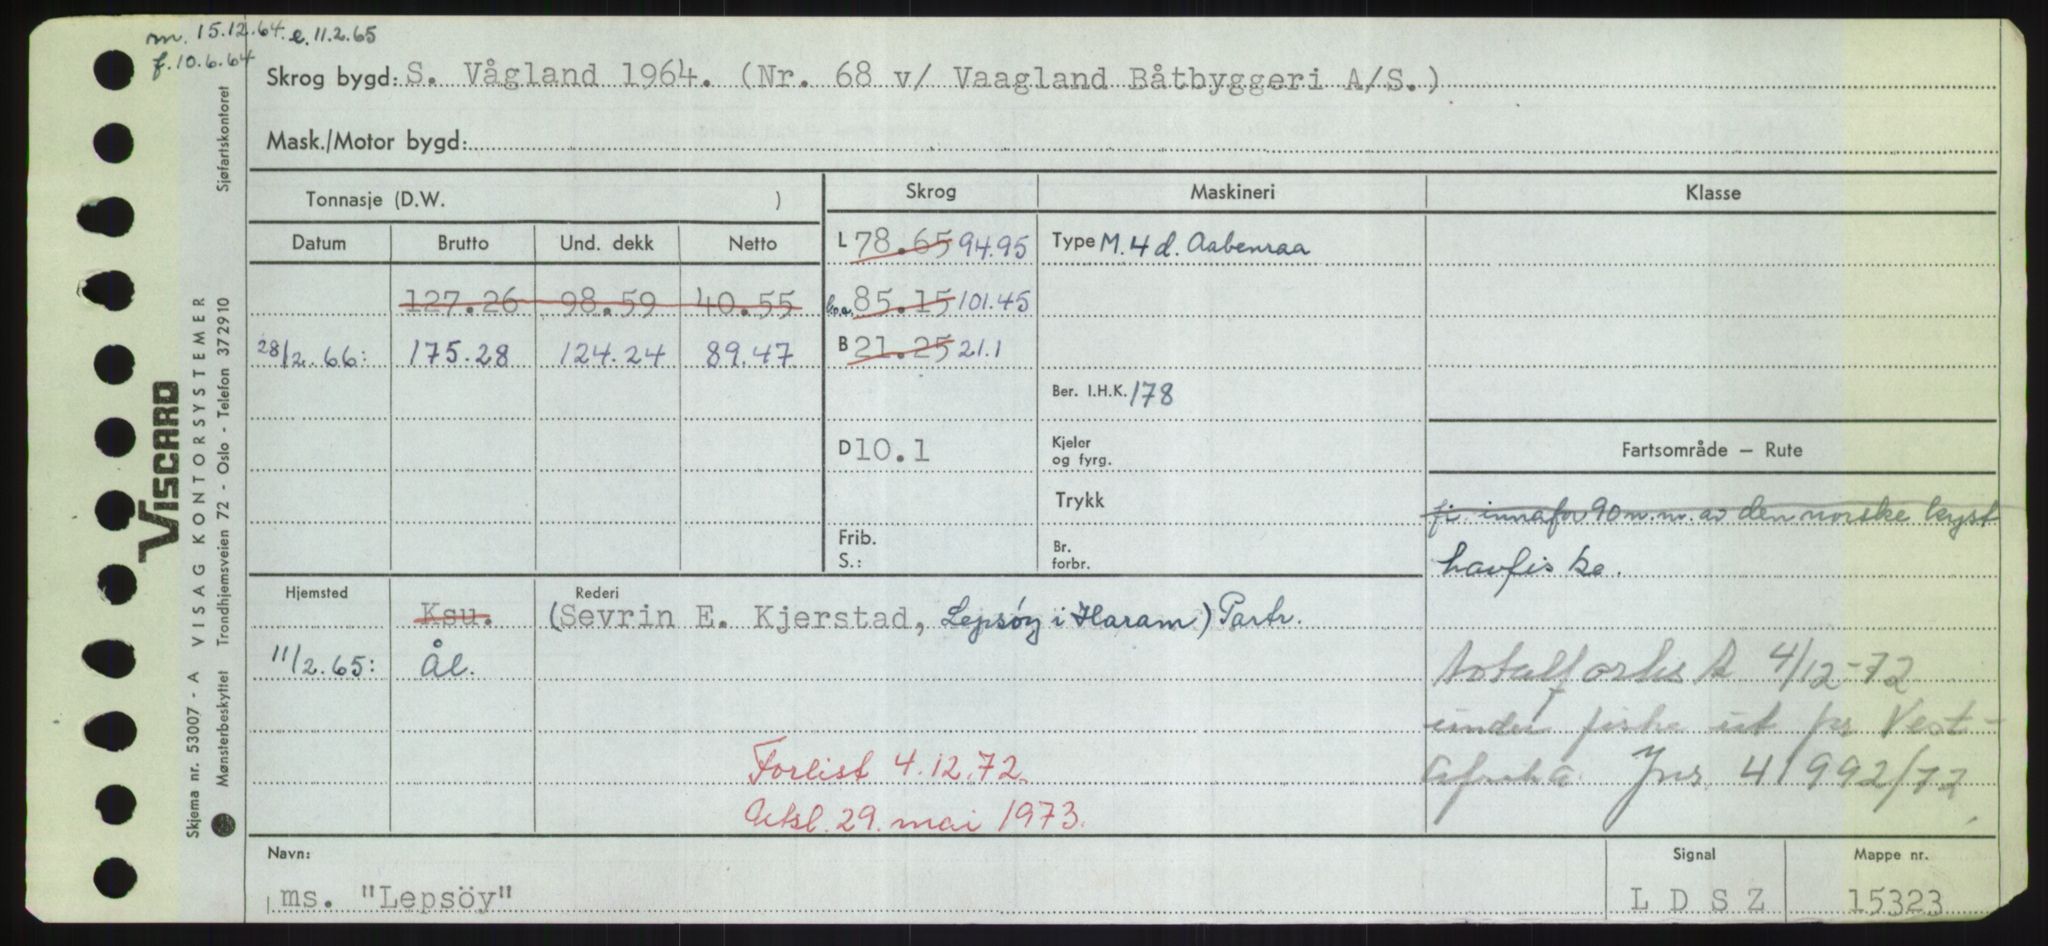 m. 15.12.64. e. 11.2.65
f. 10.6.64
Skrog bygd: S. Vågland 1964. (Nr. 68 v/ Vaagland Båtbyggeri A/S.)
Mask./Motor bygd:
Tonnasje (D.W. )
Skrog Maskineri Klasse
Datum Brutto Und. dekk Netto
L 78.65 94.95 Type M. 4 d. Aabenraa
127.26 98.59 40.55
l.o.a. 85.15 101.45
28/2.66: 175.28 124.24 89.47
B 21.25 21.1
Ber. I.H.K. 178
D 10.1
Kjeler
og fyrg.
Fartsområde – Rute
Trykk
fi. innafor 90 n.m. av den norske kyst
Frib.
S.:
Br.
forbr.
havfiske.
Hjemsted Rederi
Ksu. (Sevrin E. Kjerstad, Lepsöy i Haram) Partr.
11/2.65: Ål.
totalforlis k 4/12-72
under fiske ut for Vest-
afrika. Jnr. 41992/72.
Forlist 4.12.72.
Avtsl. 29. mai 1973.
Navn: Signal Mappe nr.
ms. "Lepsöy" L D S Z 15323
Sjøfartskontoret
VISCARD
VISAG KONTORSYSTEMER
Trondhjemsveien 72 - Oslo - Telefon 372910
Skjema nr. 53007 - A
Mønsterbeskyttet